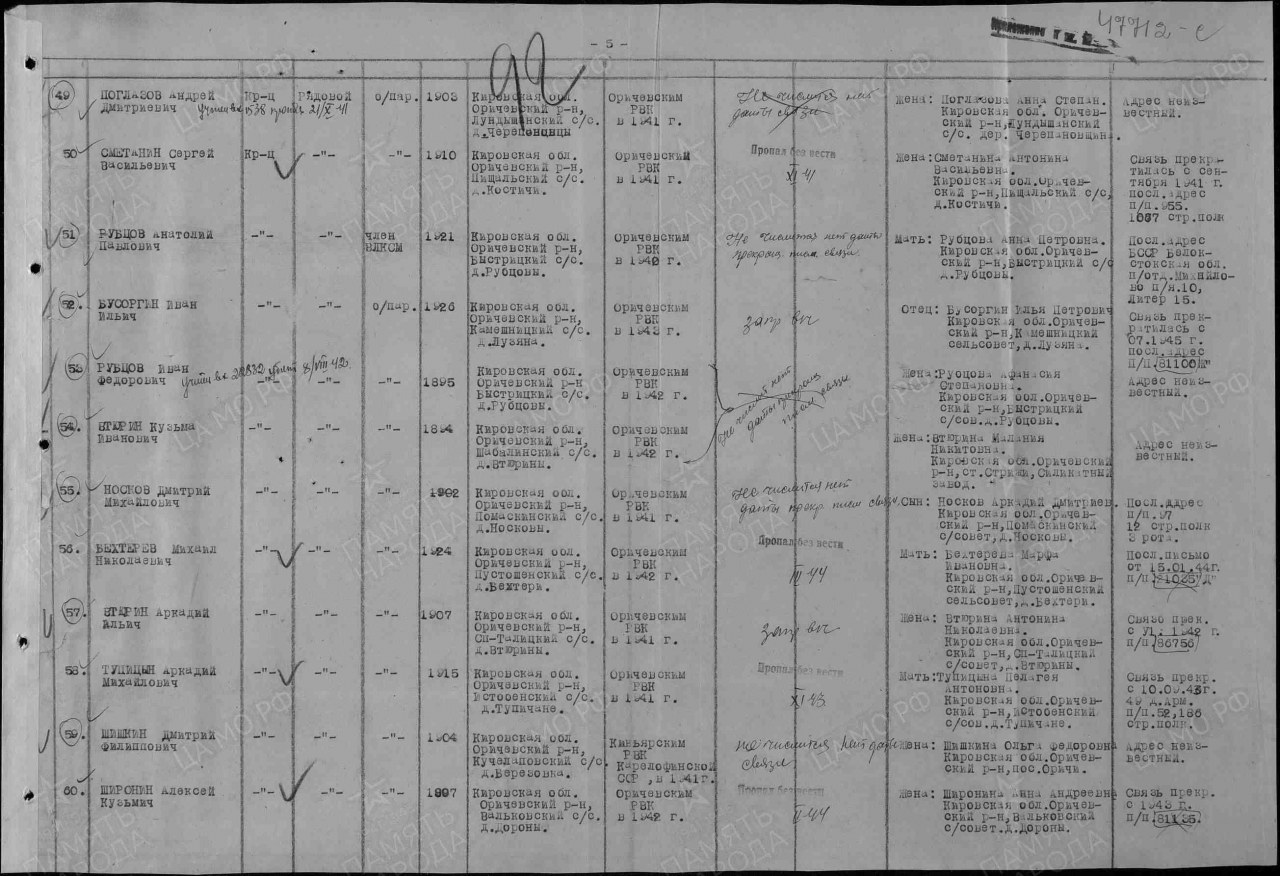 47712-с
- 5 -
92
49 ПОГЛАЗОВ Андрей Дмитриевич Кр-ц Рядовой о/пар. 1903 Кировская обл. Оричевский р-н, Лундышинский с/с. д.Черепеновцы Оричевским РВК в 1941 г. Не числится нет даты связи Жена: Поглазова Анна Степан. Кировская обл. Оричевский р-н, Лундышанский с/с. дер. Черепановщина. Адрес неизвестный.
Учтен вх 21/X 41
50 СМЕТАНИН Сергей Васильевич Кр-ц -"- -"- 1910 Кировская обл. Оричевский р-н, Пищальский с/с. д.Костичи. Оричевский РВК в 1941 г. Пропал без вести XI 41 Жена: Сметанина Антонина Васильевна. Кировская обл.Оричевский р-н,Пищальский с/с, д.Костичи. Связь прекратилась с сентября 1941 г. посл.адрес п/п.955. 1037 стр.полк
51 РУБЦОВ Анатолий Павлович -"- -"- член ВЛКСМ 1921 Кировская обл. Оричевский р-н, Быстрицкий с/с. д.Рубцовы. Оричевским РВК в 1940 г. Не числится нет даты прекращ. писем. связи Мать: Рубцова Анна Петровна. Кировская обл.Оричевский р-н,Быстрицкий с/с д.Рубцовы. Посл.адрес БССР Белостокская обл. п/отд.Михайлово п/я.10, Литер 15.
52. БУСОРГИН Иван Ильич -"- -"- о/пар. 1926 Кировская обл. Оричевский р-н, Камешницкий с/с. д.Лузяна. Оричевским РВК в 1943 г. запр вч Отец: Бусоргин Илья Петрович Кировская обл.Оричевский р-н,Камешницкий сельсовет,д.Лузяна. Связь прекратилась с 07.1945 г. посл.адрес п/п.81100"Ш"
53 РУБЦОВ Иван Федорович -"- -"- -"- 1895 Кировская обл. Оричевский р-н Быстрицкий с/с. д.Рубцовы. Оричевским РВК в 1942 г. Не числится нет даты прекращ писем связи Жена:Рубцова Афанасия Степановна. Кировская обл.Оричевский р-н,Быстрицкий с/сов.д.Рубцовы. Адрес неизвестный.
Учтен вх. 8/VIII 42
54. ВТЮРИН Кузьма Иванович -"- -"- -"- 1894 Кировская обл. Оричевский р-н, Шабалинский с/с. д.Втюрины. Оричевским РВК в 1942 г. Жена:Втюрина Малания Никитовна. Кировская обл.Оричевский р-н,ст.Стрижи,Силикатный завод. Адрес неизвестный.
55. НОСКОВ Дмитрий Михайлович -"- -"- -"- 1902 Кировская обл. Оричевский р-н, Помаскинский с/с. д.Носковы. Оричевским РВК в 1941 г. Не числится нет даты прекр писем связи Сын: Носков Аркадий Дмитриев. Кировская обл.Оричевский р-н,Помаскинский с/совет,д.Носковы. Посл.адрес п/п.97 12 стр.полк 3 рота.
56. БЕХТЕРЕВ Михаил Николаевич -"- -"- -"- 1924 Кировская обл. Оричевский р-н, Пустошенский с/с. д.Бехтери. Оричевским РВК в 1942 г. Пропал без вести III 44 Мать: Бехтерева Марфа Ивановна. Кировская обл.Оричевский р-н,Пустошенский сельсовет,д.Бехтери. Посл.письмо от 15.01.44г. п/п.21026"Д"
57. ВТЮРИН Аркадий Ильич -"- -"- -"- 1907 Кировская обл. Оричевский р-н, Сп-Талицкий с/с. д.Втюрины. Оричевским РВК в 1941 г. запр вч Жена: Втюрина Антонина Николаевна. Кировская обл.Оричевский р-н,Сп-Талицкий с/совет,д.Втюрины. Связь прек. с У1. 1942 г. п/п.86756
58. ТУПИЦЫН Аркадий Михайлович -"- -"- -"- 1915 Кировская обл. Оричевский р-н, Истобенский с/с. д.Тупичане. Оричевским РВК в 1941 г. Пропал без вести XI 43 Мать:Тупицына Пелагея Антоновна. Кировская обл.Оричевский р-н,Истобенский с/сов.д.Тупичане. Связь прекр. с 10.09.43г. 49 д.арм. п/п.52,186 стр.полк.
59. ШИШКИН Дмитрий Филиппович -"- -"- -"- 1904 Кировская обл. Оричевский р-н, Кучелаповский с/с. д.Березовка. РВК Карелофинской ССР ,в 1941г. не числится нет даты связи Жена: Шишкина Ольга Федоровна Кировская обл.Оричевский р-н,пос.Оричи. Адрес неизвестный.
60. ШИРОНИН Алексей Кузьмич -"- -"- -"- 1897 Кировская обл. Оричевский р-н, Вальковский с/с. д.Дороны. Оричевским РВК в 1942 г. Пропал без вести II 44 Жена: Широнина Анна Андреевна Кировская обл.Оричевский р-н,Вальковский с/совет.д.Дороны. Связь прекр. с 1943 г. п/п.81135.